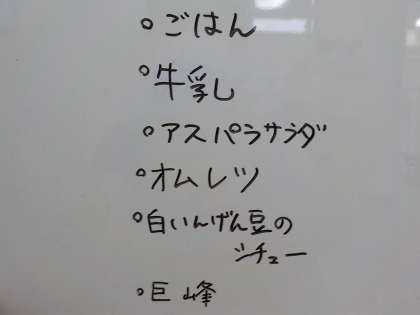 ○ごはん
○牛乳
○アスパラサラダ
○オムレツ
○白いんげん豆の
シチュー
○巨峰